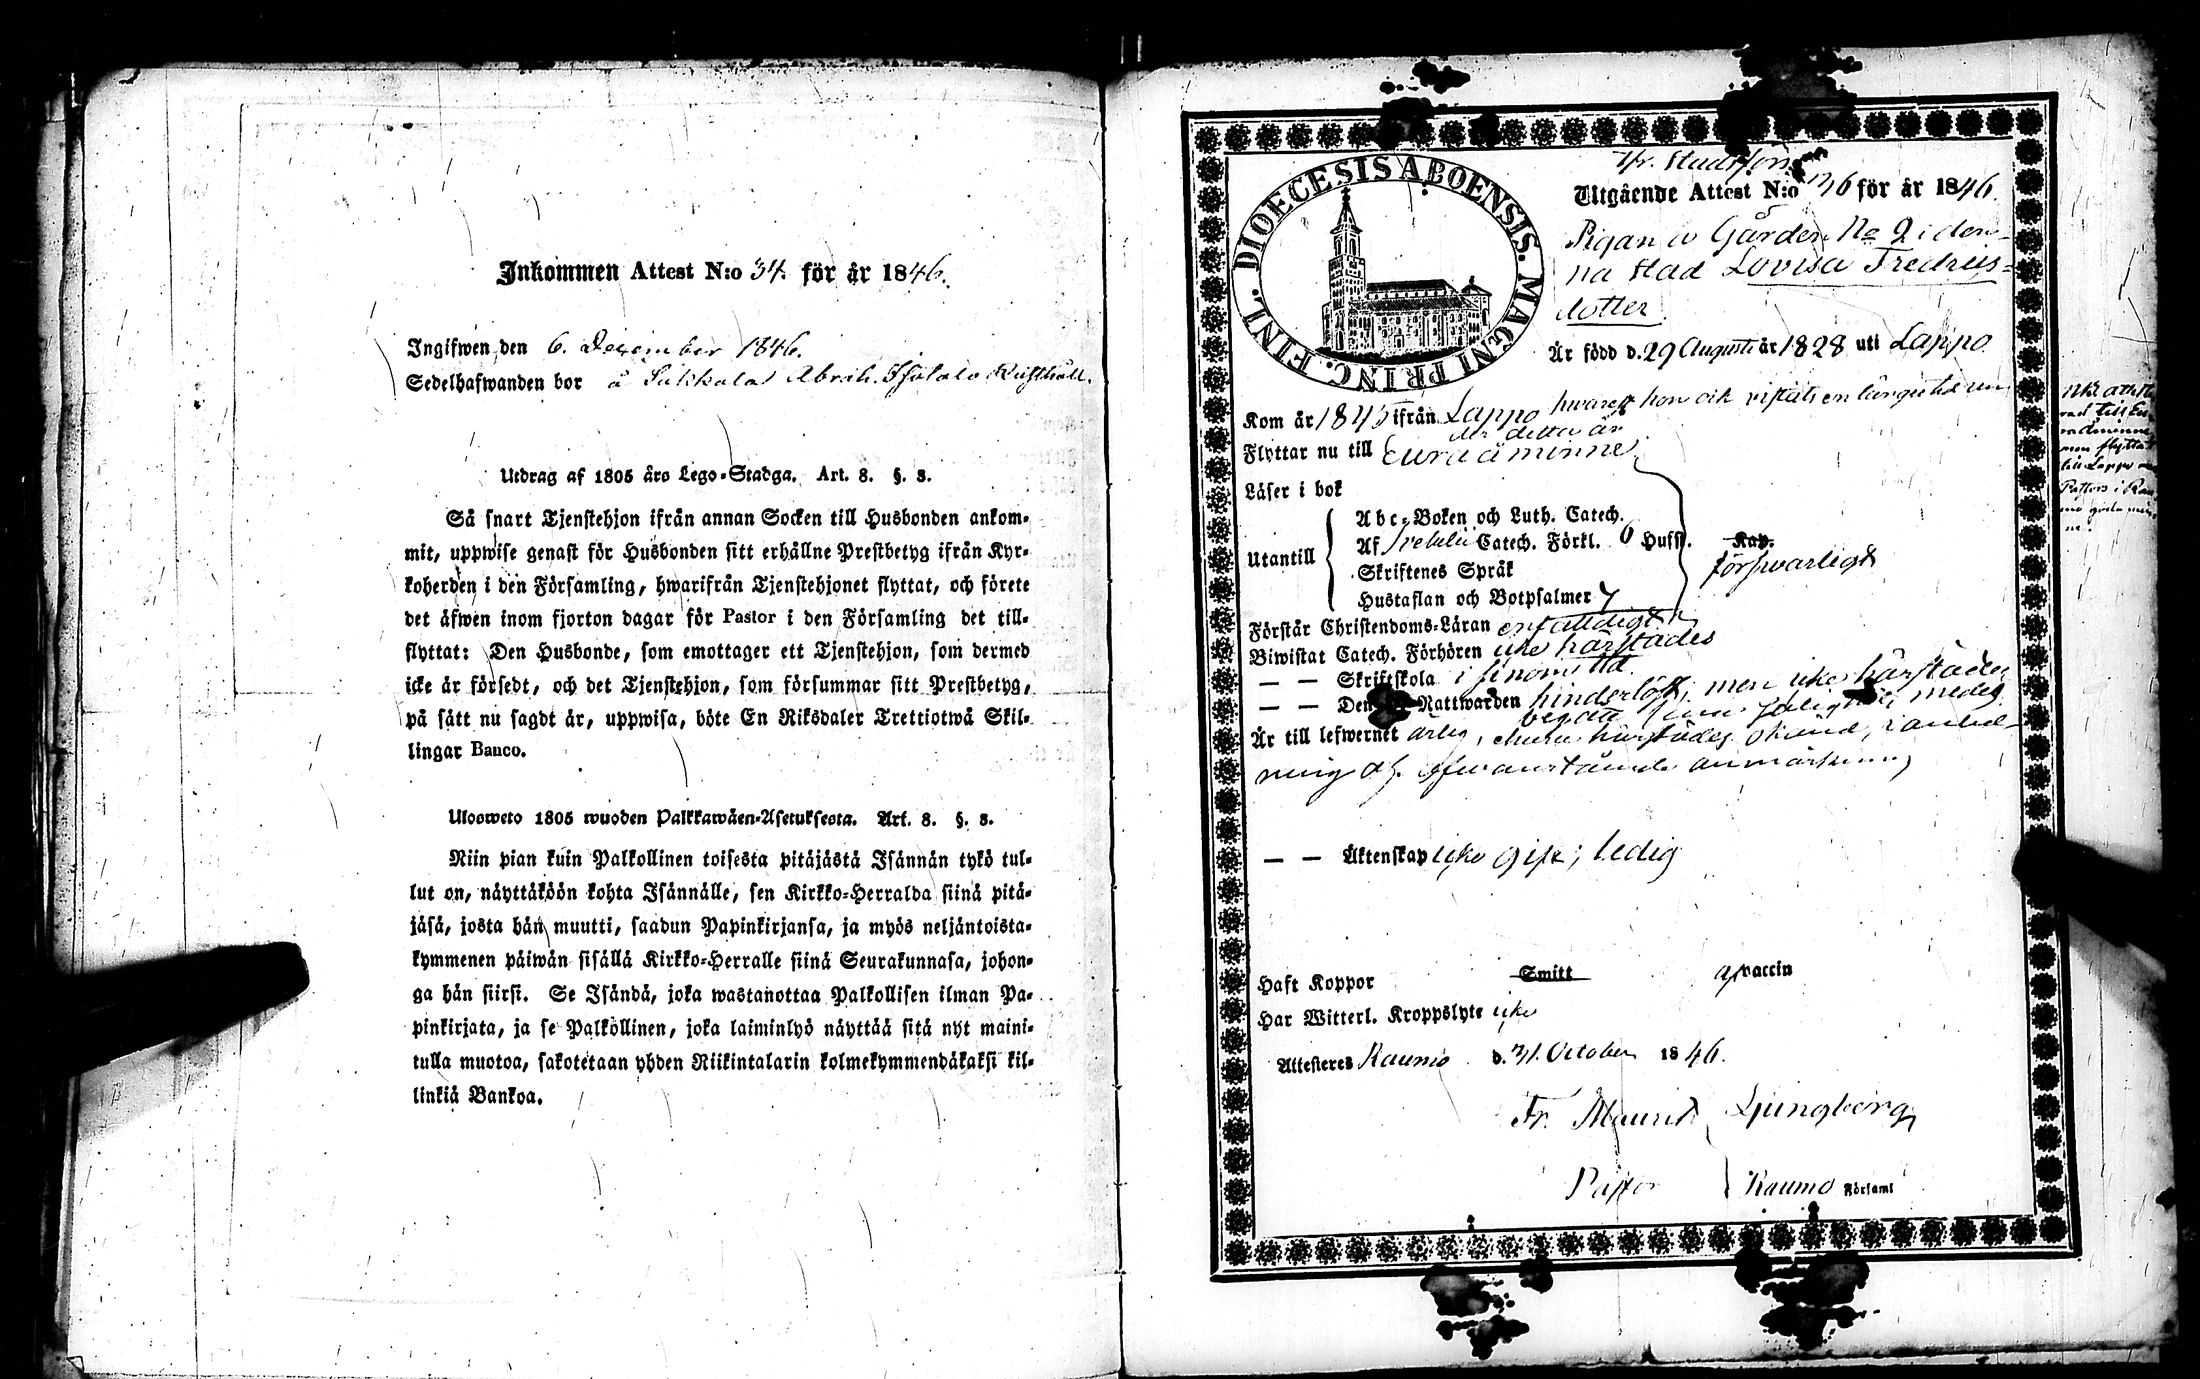 Inkommen Attest N:o 34. för år 1846.
Ingifwen den 6. December 1846.
Sedelhafwanden bor å Sukkala Abrah. Rusthåll.
Utdrag af 1805 års Lego-Stadga. Art. 8. §. 3.
Så snart Tjenstehjon ifrån annan Socken till Husbonden ankom-
mit, uppwise genast för Husbonden sitt erhållne Prestbetyg ifrån Kyr-
koherden i den Församling, hwarifrån Tjenstehjonet flyttat, och förete
det äfwen inom fjorton dagar för Pastor i den Församling det till-
flyttat: Den Husbonde, som emottager ett Tjenstehjon, som dermed
icke är försedt, och det Tjenstehjon, som försummar sitt Prestbetyg,
på sätt nu sagdt är, uppwisa, böte En Riksdaler Trettiotwå Skil-
lingar Banco.
Uloosweto 1805 wuoden Palkkawäen-Asetuksesta. Art. 8. §. 3.
Niin pian kuin Palkollinen toisesta pitäjästä Isännän tykö tul-
lut on, näyttäköön kohta Isännälle, sen Kirkko-Herralda siinä pitä-
jäsä, josta hän muutti, saadun Papinkirjansa, ja myös neljäntoista-
kymmenen päiwän sisällä Kirkko-Herralle siinä Seurakunnasa, johon-
ga hän siirsi. Se Isändä, joka wastanottaa Palkollisen ilman Pa-
pinkirjata, ja se Palkollinen, joka laiminlyö näyttää sitä nyt maini-
tulla muotoa, sakotetaan yhden Riikintalarin kolmekymmendäkaksi kil-
linkiä Bankoa.
DIOECESIS ABOENSIS. MAGNI PRINC. FINL.
Utgående Attest N:o för år 1846.
Pigan å Gården No 2 i den-
na stad Lovisa Fredriks-
dotter.
Är född d. 29 Augusti år 1828 uti Lappo
Kom år 1845 ifrån Lappo hwarest hon ock vistats en längre tid
detta år
Flyttar nu till Euraåminne;
Läser i bok
Utantill
Abc-Boken och Luth. Catech.
Af Svebelii Catech. Förkl. 6 Hufst. Kap.
Skriftenes Språk
Hustaflan och Botpsalmer 7
försvarligt
Förstår Christendoms-Läran enfaldigt
Biwistat Catech. Förhören icke härstädes
— — Skriftskola i sinom tid.
— — Den H. Nattwarden hinderlöst; men icke härstädes
begått
Är till lefwernet ärlig, härstädes okänd, i anled-
ning af ofwanstående anmärkning
— — Äktenskap icke gift; ledig
Haft Koppor Smitt af vaccin
Har Witterl. Kroppslyte icke
Attesteres Raumo d. 31. October 1846.
Fr. Maurits Ljungberg
Pastor Raumo Församl
till Eu-
raåminne
men flyttat
till Lappo
Pastors i Rau-
mo